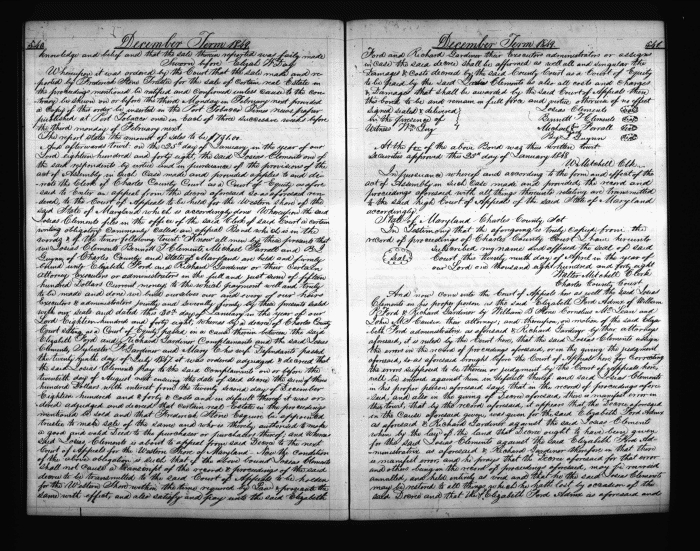 540 December Term 1849
knowledge and belief and that the sale therein reported was fairly made
Sworn before
Whereupon it was ordered by the Court that the sale made and re-
ported by Frederick Stone Trustee for the sale of certain real Estate in
the proceedings mentioned be ratified and confirmed unless cause to the con-
trary be shewn on or before the third Monday in February next, provided
a copy of this order be inserted in the Port Tobacco Times newspaper
published at Port Tobacco once in each of three successive weeks before
the third Monday of February next.
The report states the amount of sales to be
And afterwards to wit on the 25th day of January in the year of our
Lord eighteen hundred and forty eight, the said Josias Clements one of
the said respondents by notice and in pursuance of the provisions of the
act of Assembly in such Case made and provided applies to and de-
sires the Clerk of Charles County Court as a Court of Equity
to Enter an appeal from the decree aforesaid so as aforesaid ren-
dered, to the Court of Appeals to be held for the Western Shore of the
said State of Maryland which is accordingly done. Whereupon the said
Josias Clements files in the office of the said Clerk of said Court a certain
writing obligatory commonly called an appeal Bond which is in the
words & of the tenor following to wit: "Know all men by these presents that
we Josias Clements Bennett F Clements Michael Farrall and
of Charles County and State of Maryland are held and firmly
bound unto Elizabeth Ford and Richard Gardiner or their Certain
attorney Executors or administrators in the full and just sum of fifteen
hundred Dollars Current money to the which payment well and truly
to be made and done we bind ourselves our and every of our heirs
Executors & administrators jointly and severally firmly by these presents sealed
with our seals and dated this 25th day of January in the year of our
Lord Eighteen hundred and forty eight. Whereas by a decree of Charles County
Court sitting as a Court of Equity passed in a Cause therein in which the said
Elizabeth Ford and Richard Gardiner Complainants and the said Josias
Clements, Defendants passed
the twenty ninth day of July 1847 it was ordered adjudged & decreed that
the said Josias Clements pay to the said Complainants on or before the
twentieth day of August next ensuing the date of said decree the sum of three
hundred Dollars with interest from the twenty seventh day of December
Eighteen hundred and forty & costs and in default thereof it was or-
dered adjudged and decreed that certain real Estate in the proceedings
mentioned be sold and that Frederick Stone Esquire be appointed
trustee to make sale of the same and whereas thereby authorised to make
a good and valid Deed to the purchaser or purchasers thereof, and Whereas
Said Josias Clements is about to appeal from said Decree to the next
Court of Appeals for the Western Shore of Maryland. Now the Condition
of the above obligation is such that if the above bound Josias Clements
shall not cause a transcript of the record & proceedings of the said
decree to be transmitted to the said Court of Appeals to be holden
for the Western Shore within the time required by Law & prosecute the
same with effect, and also satisfy and pay unto the said Elizabeth
December Term 1849 541
Ford and Richard Gardiner their Executors administrators or assigns
in case the said decree shall be affirmed as well all and singular the
Damages & Costs decreed by the said County Court as a Court of Equity
to be paid by the said Josias Clements as also all costs and Charges
& Damages that shall be awarded by the said Court of Appeals then
this bond to be and remain in full force, and virtue otherwise of no effect
Signed sealed & delivered } Josias Clements Seal
in the presence of } Bennett F Clements Seal
Witness } Michael Farrall Seal
Seal
At the foot of the above Bond was thus written to wit
Securities approved this 25th day of January 1848
W Mitchell Clk.
In pursuance whereof and according to the form and effect of the
act of Assembly in such Case made and provided the record and
proceedings aforesaid with all things thereunto relating are transmitted
to the said high Court of Appeals of the said State of Maryland
accordingly.
State of Maryland Charles County Sct
In testimony that the aforegoing is truly Copied from the
record of proceedings of Charles County Court I have hereunto
Subscribed my name and affixed the seal of said
Seal
Court, this twenty ninth day of April in the year of
our Lord one thousand eight hundred and forty eight
Walter Mitchell Clerk
Charles County Court
And now come into the Court of Appeals here as well the said Josias
Clements in his proper person as the said Elizabeth Ford Admx of William
Ford & Richard Gardiner by William B Stone Cornelius McLean and
John their attorneys; and thereupon, on motion of the said Eliza-
beth Ford administratrix as aforesaid & Richard Gardiner by their attorneys
aforesaid, it is ruled by the Court here, that the said Josias Clements assign
the errors in the record & proceedings aforesaid, or in the giving the judgment
aforesaid, as aforesaid brought before the Court of Appeals here for correcting
the errors supposed to be therein or judgment by the Court of Appeals here,
will be entered against him in default thereof and said Josias Clements
in his proper person aforesaid says that in the record & proceedings afore-
said, and also in the giving of Decree aforesaid, there is manifest error in
this towit, that by the record aforesaid, it appears that the Decree aforesaid
in the Cause aforesaid given, was given for the said Elizabeth Ford Admx
as aforesaid & Richard Gardiner against the said Josias Clements
when by the law of the land that Decree ought to have been given
for the said Josias Clements against the said Elizabeth Ford Ad-
ministratrix as aforesaid & Richard Gardiner therefore in that there
is manifest error and he prays that the Decree aforesaid for this error
and others being in the record & proceedings aforesaid, may be reversed
annulled, and held entirely as void and that he the said Josias Clements
may be restored to all things which he hath lost by occasion of the
said Decree and that the said Elizabeth Ford Admx as aforesaid and